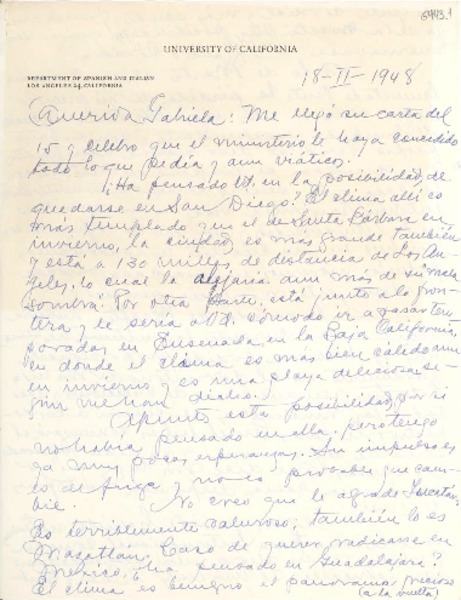 6443.1
UNIVERSITY OF CALIFORNIA
DEPARTMENT OF SPANISH AND ITALIAN
LOS ANGELES 24, CALIFORNIA
18-II-1948
Querida Gabriela: Me llegó su carta del
15 y celebro que el ministerio le haya concedido
todo lo que pedía y aun viático.
¿Ha pensado Ud. en la posibilidad de
quedarse en San Diego? El clima allí es
más templado que el de Santa Bárbara en
invierno, la ciudad es más grande también
y está a 130 millas de distancia de Los An-
geles, lo cual la alejaría aun más de su mala
sombra. Por otra parte, está junto a la fron-
tera y le sería a Ud. cómodo ir a pasar tem-
poradas en Ensenada, en la Baja California,
en donde el clima es más bien cálido aun
en invierno y es una playa deliciosa se-
gún me han dicho.
Apunto esta posibilidad por si
no había pensado en ella, pero tengo
ya muy pocas esperanzas. Su impulso es
de fuga y no es probable que cam-
bie.
No creo que le agrade Yucatán.
Es terriblemente caluroso; también lo es
Mazatlán. Caso de querer radicarse en
México, ¿ha pensado en Guadalajara?
El clima es benigno el panorama precioso
(a la vuelta)